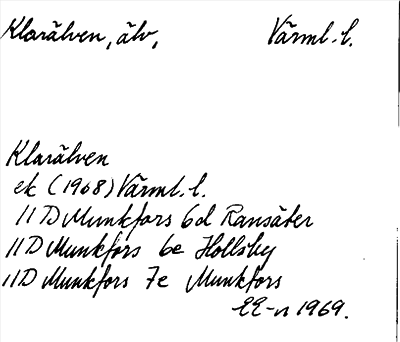 Klarälven, älv, Värml. l.
Klarälven
ek (1968) Värml. l.
11 D Munkfors 6d Ransäter
11 D Munkfors 6e Hollsby
11 D Munkfors 7e Munkfors
EE-n 1969.